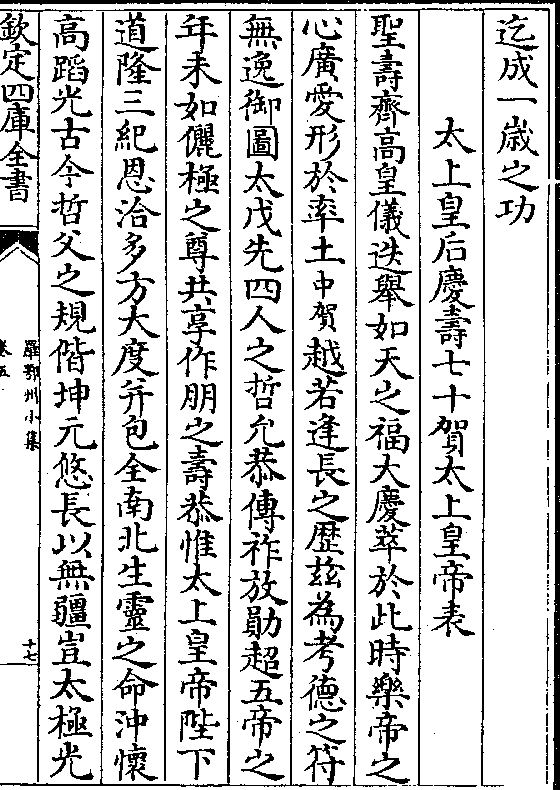 迄成一歳之功
太上皇后慶壽七十賀太上皇帝表
聖壽齊高皇儀迭舉如天之福大慶萃於此時樂帝之
心廣愛形於率土中賀越若逢長之歴兹為考德之符
無逸御圖太戊先四人之哲允恭傳祚放勛超五帝之
年未如儷極之尊共享作朋之壽恭惟太上皇帝陛下
道隆三紀恩洽多方大度并包全南北生靈之命沖懷
高蹈光古今哲父之規偕坤元悠長以無疆豈太極光
欽定四庫全書
羅鄂州小集
卷五
十七